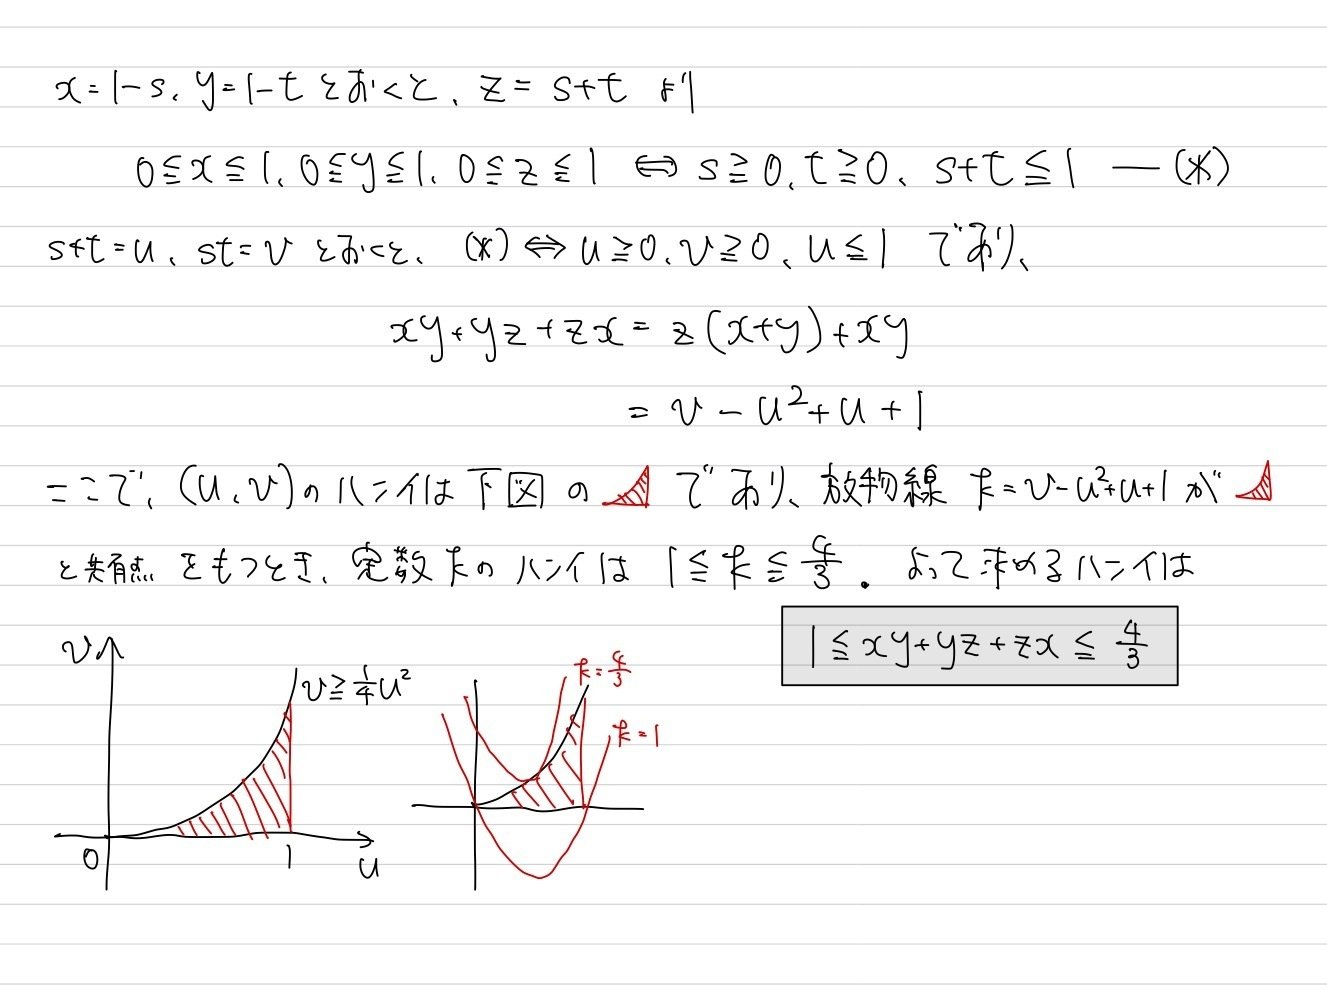 x=1-s、y=1-tとおくと、z=s+tより
0≦x≦1、0≦y≦1、0≦z≦1 ⇔ s≧0、t≧0、s+t≦1 —(*)
s+t=u、st=vとおくと、(*)⇔u≧0、v≧0、u≦1 であり、
xy+yz+zx=z(x+y)+xy
=v-u²+u+1
ここで、(u,v)のハンイは下図の であり、放物線 k=v-u²+u+1が
と共有点をもつとき、定数kのハンイは 1≦k≦4/3. よって求めるハンイは
1≦xy+yz+zx≦4/3
v
v≧1/4u²
0
1
u
k=4/3
k=1